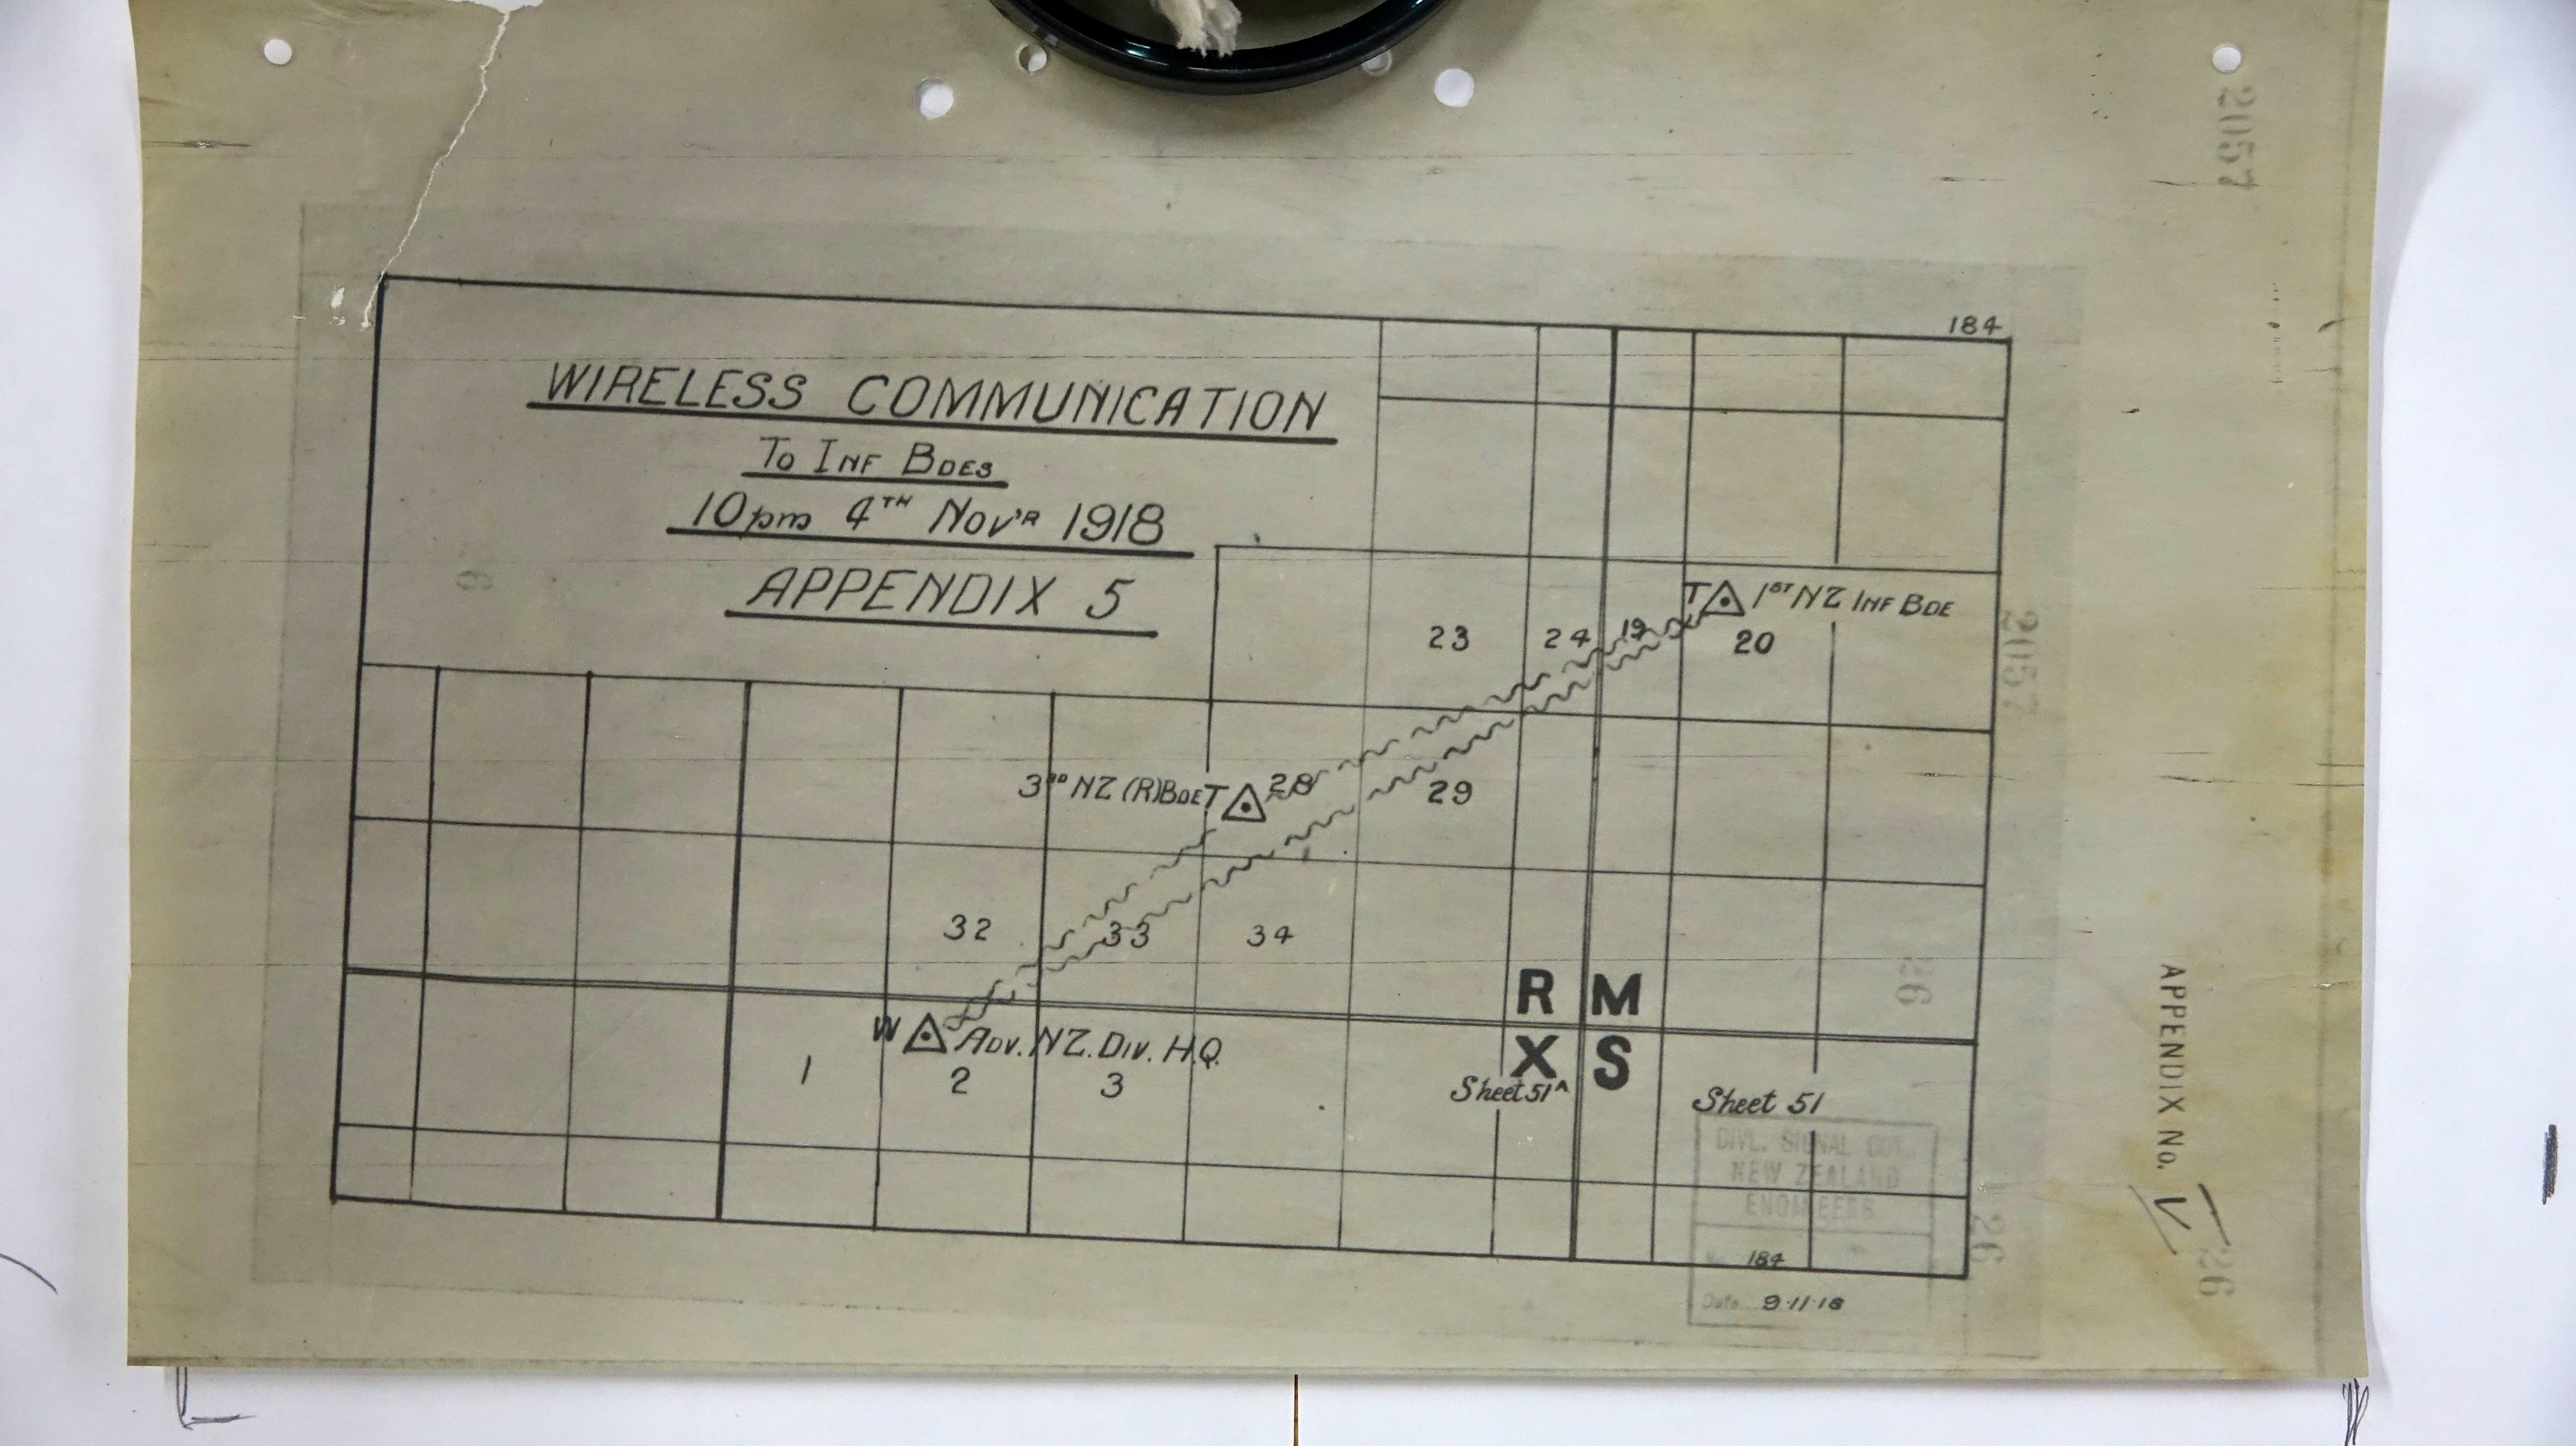 2057
184
WIRELESS COMMUNICATION
TO INF BDES
10pm 4TH NOV'R 1918
APPENDIX 5
T 1ST NZ INF BDE
23 24 19 20
2057
26
3RD NZ (R) BDE T 28 29
32 33 34
26
R M
W ADV. NZ. DIV. H.Q.
X S
1 2 3
Sheet 51A
Sheet 51
DIVL. SIGNAL COY.,
NEW ZEALAND
ENGINEERS
No. 184
Date 9·11·18
26
APPENDIX No. V
26